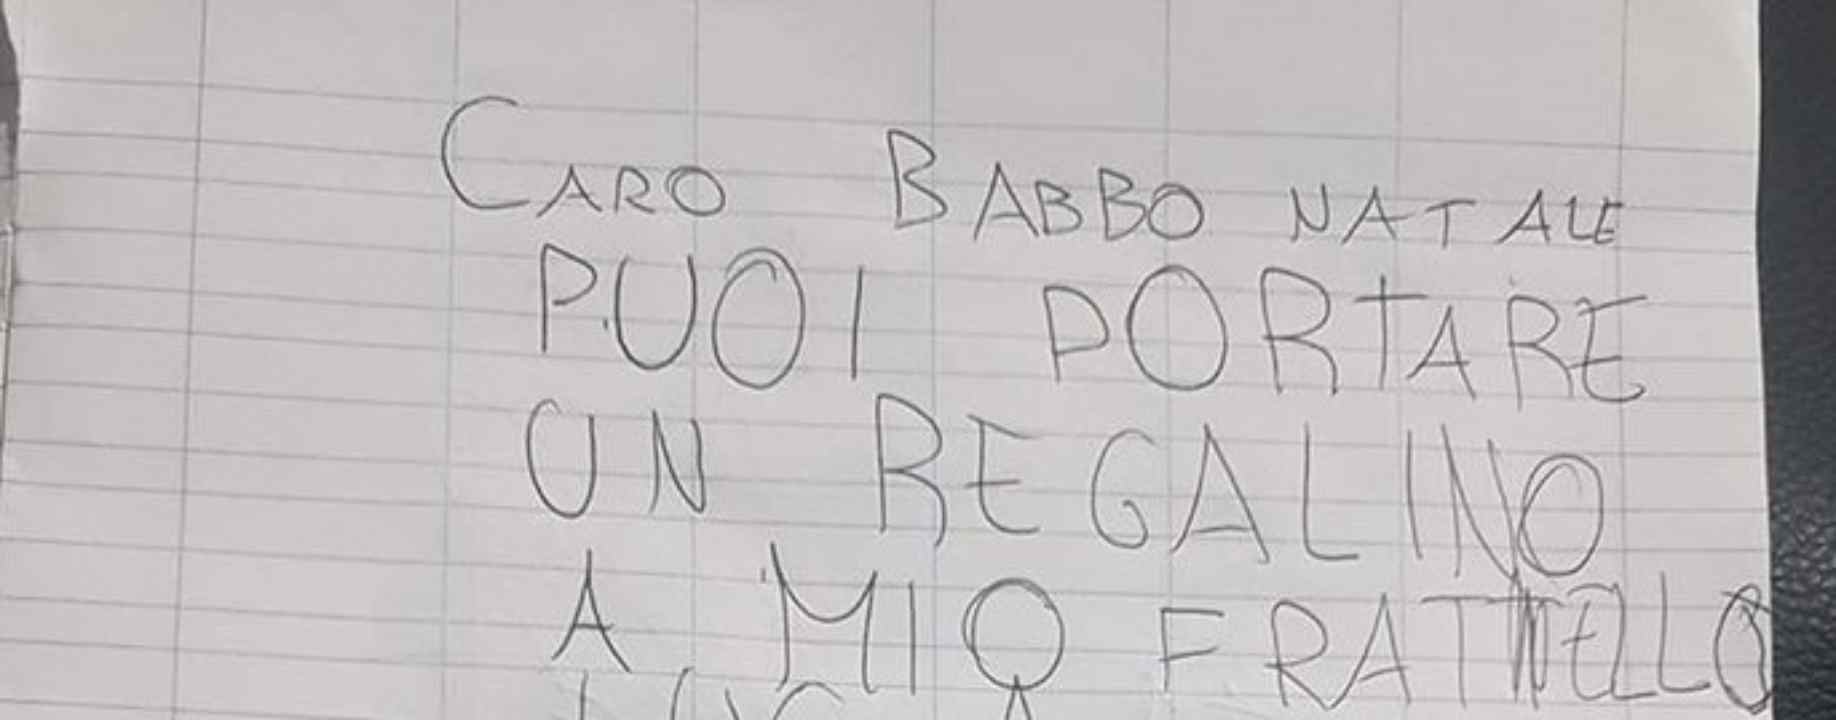 CARO BABBO NATALE
PUOI PORTARE
UN REGALINO
A MIO FRATELLO